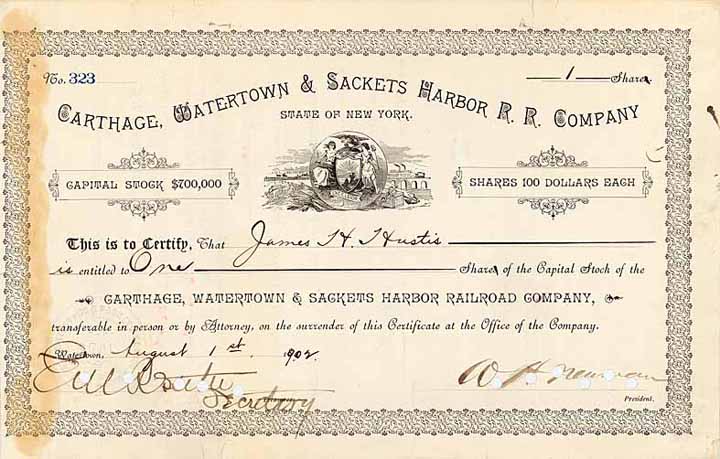 No. 323
1 Share
CARTHAGE, WATERTOWN & SACKETS HARBOR R. R. COMPANY
STATE OF NEW YORK.
CAPITAL STOCK $700,000
SHARES 100 DOLLARS EACH
This is to Certify, That James H. Hustis
is entitled to One Share of the Capital Stock of the
CARTHAGE, WATERTOWN & SACKETS HARBOR RAILROAD COMPANY,
transferable in person or by Attorney, on the surrender of this Certificate at the Office of the Company.
Watertown, August 1st. 1902.
Secretary
W H Newman
President.